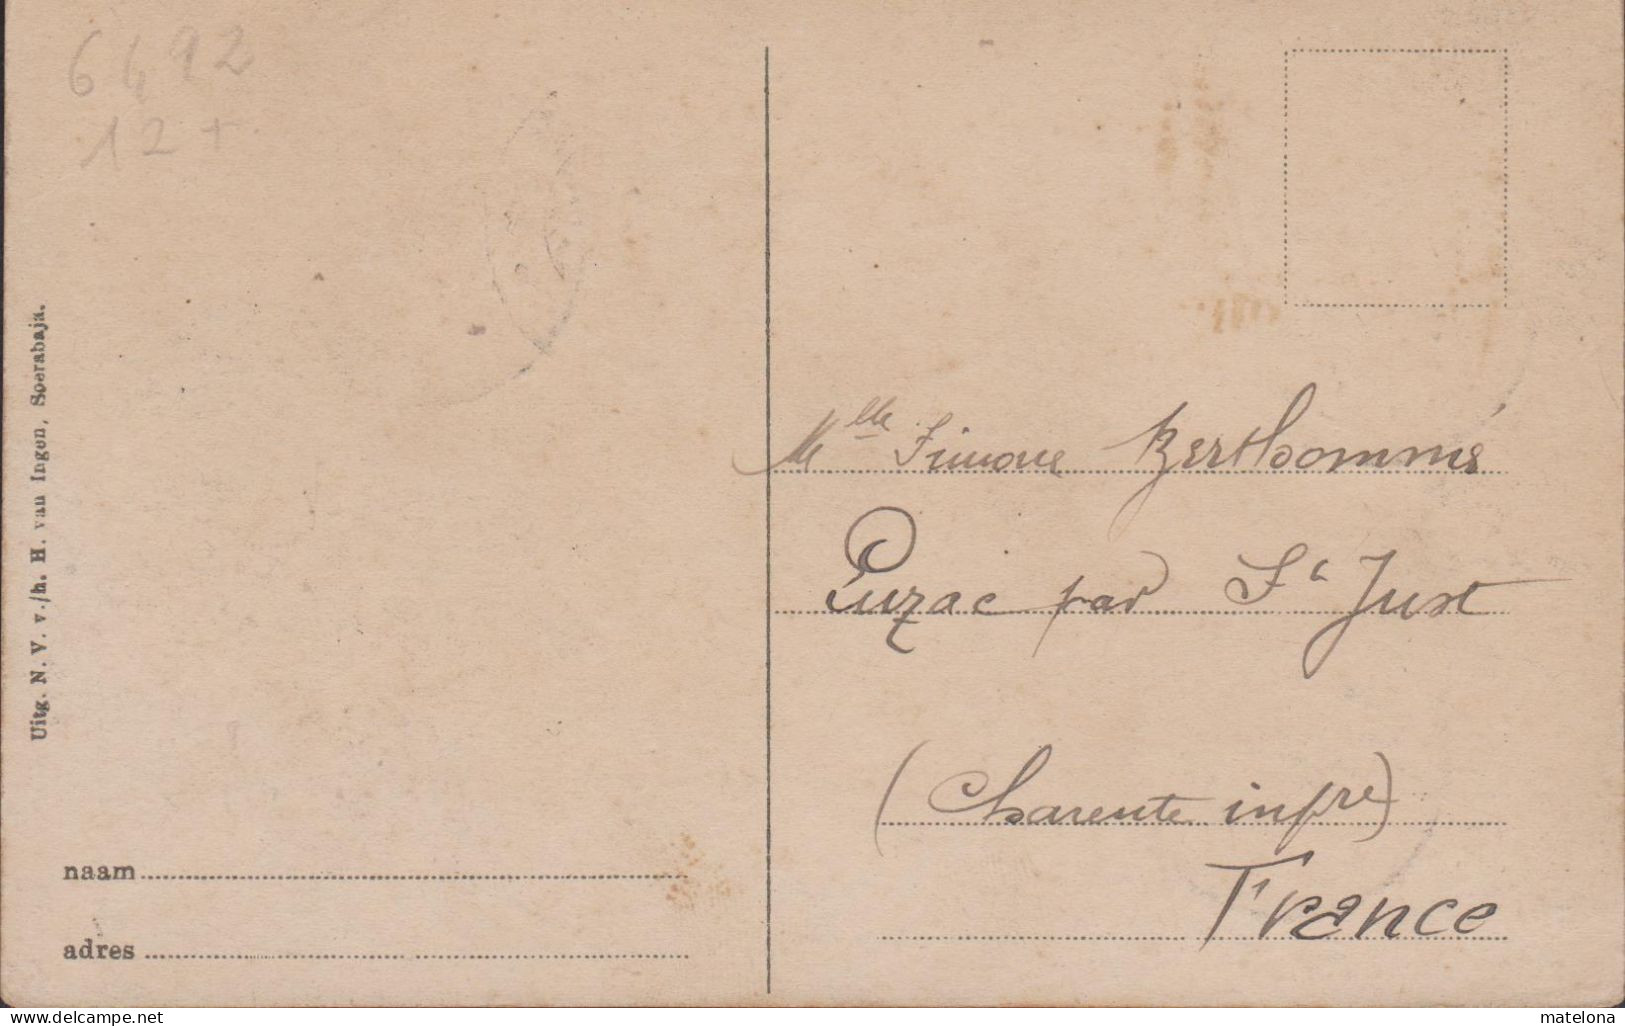 6492
12+
Uitg. N. V. v./h. H. van Ingen, Soerabaja.
Mlle Simone Berthommé
Luzac par St Just
(Charente infre)
France
naam
adres
www.delcampe.net
matelona